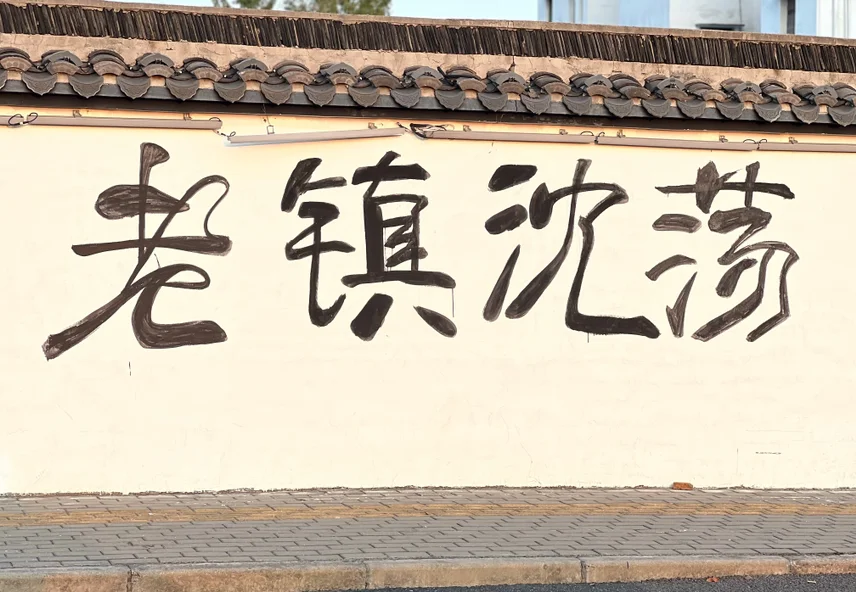 老镇沈荡